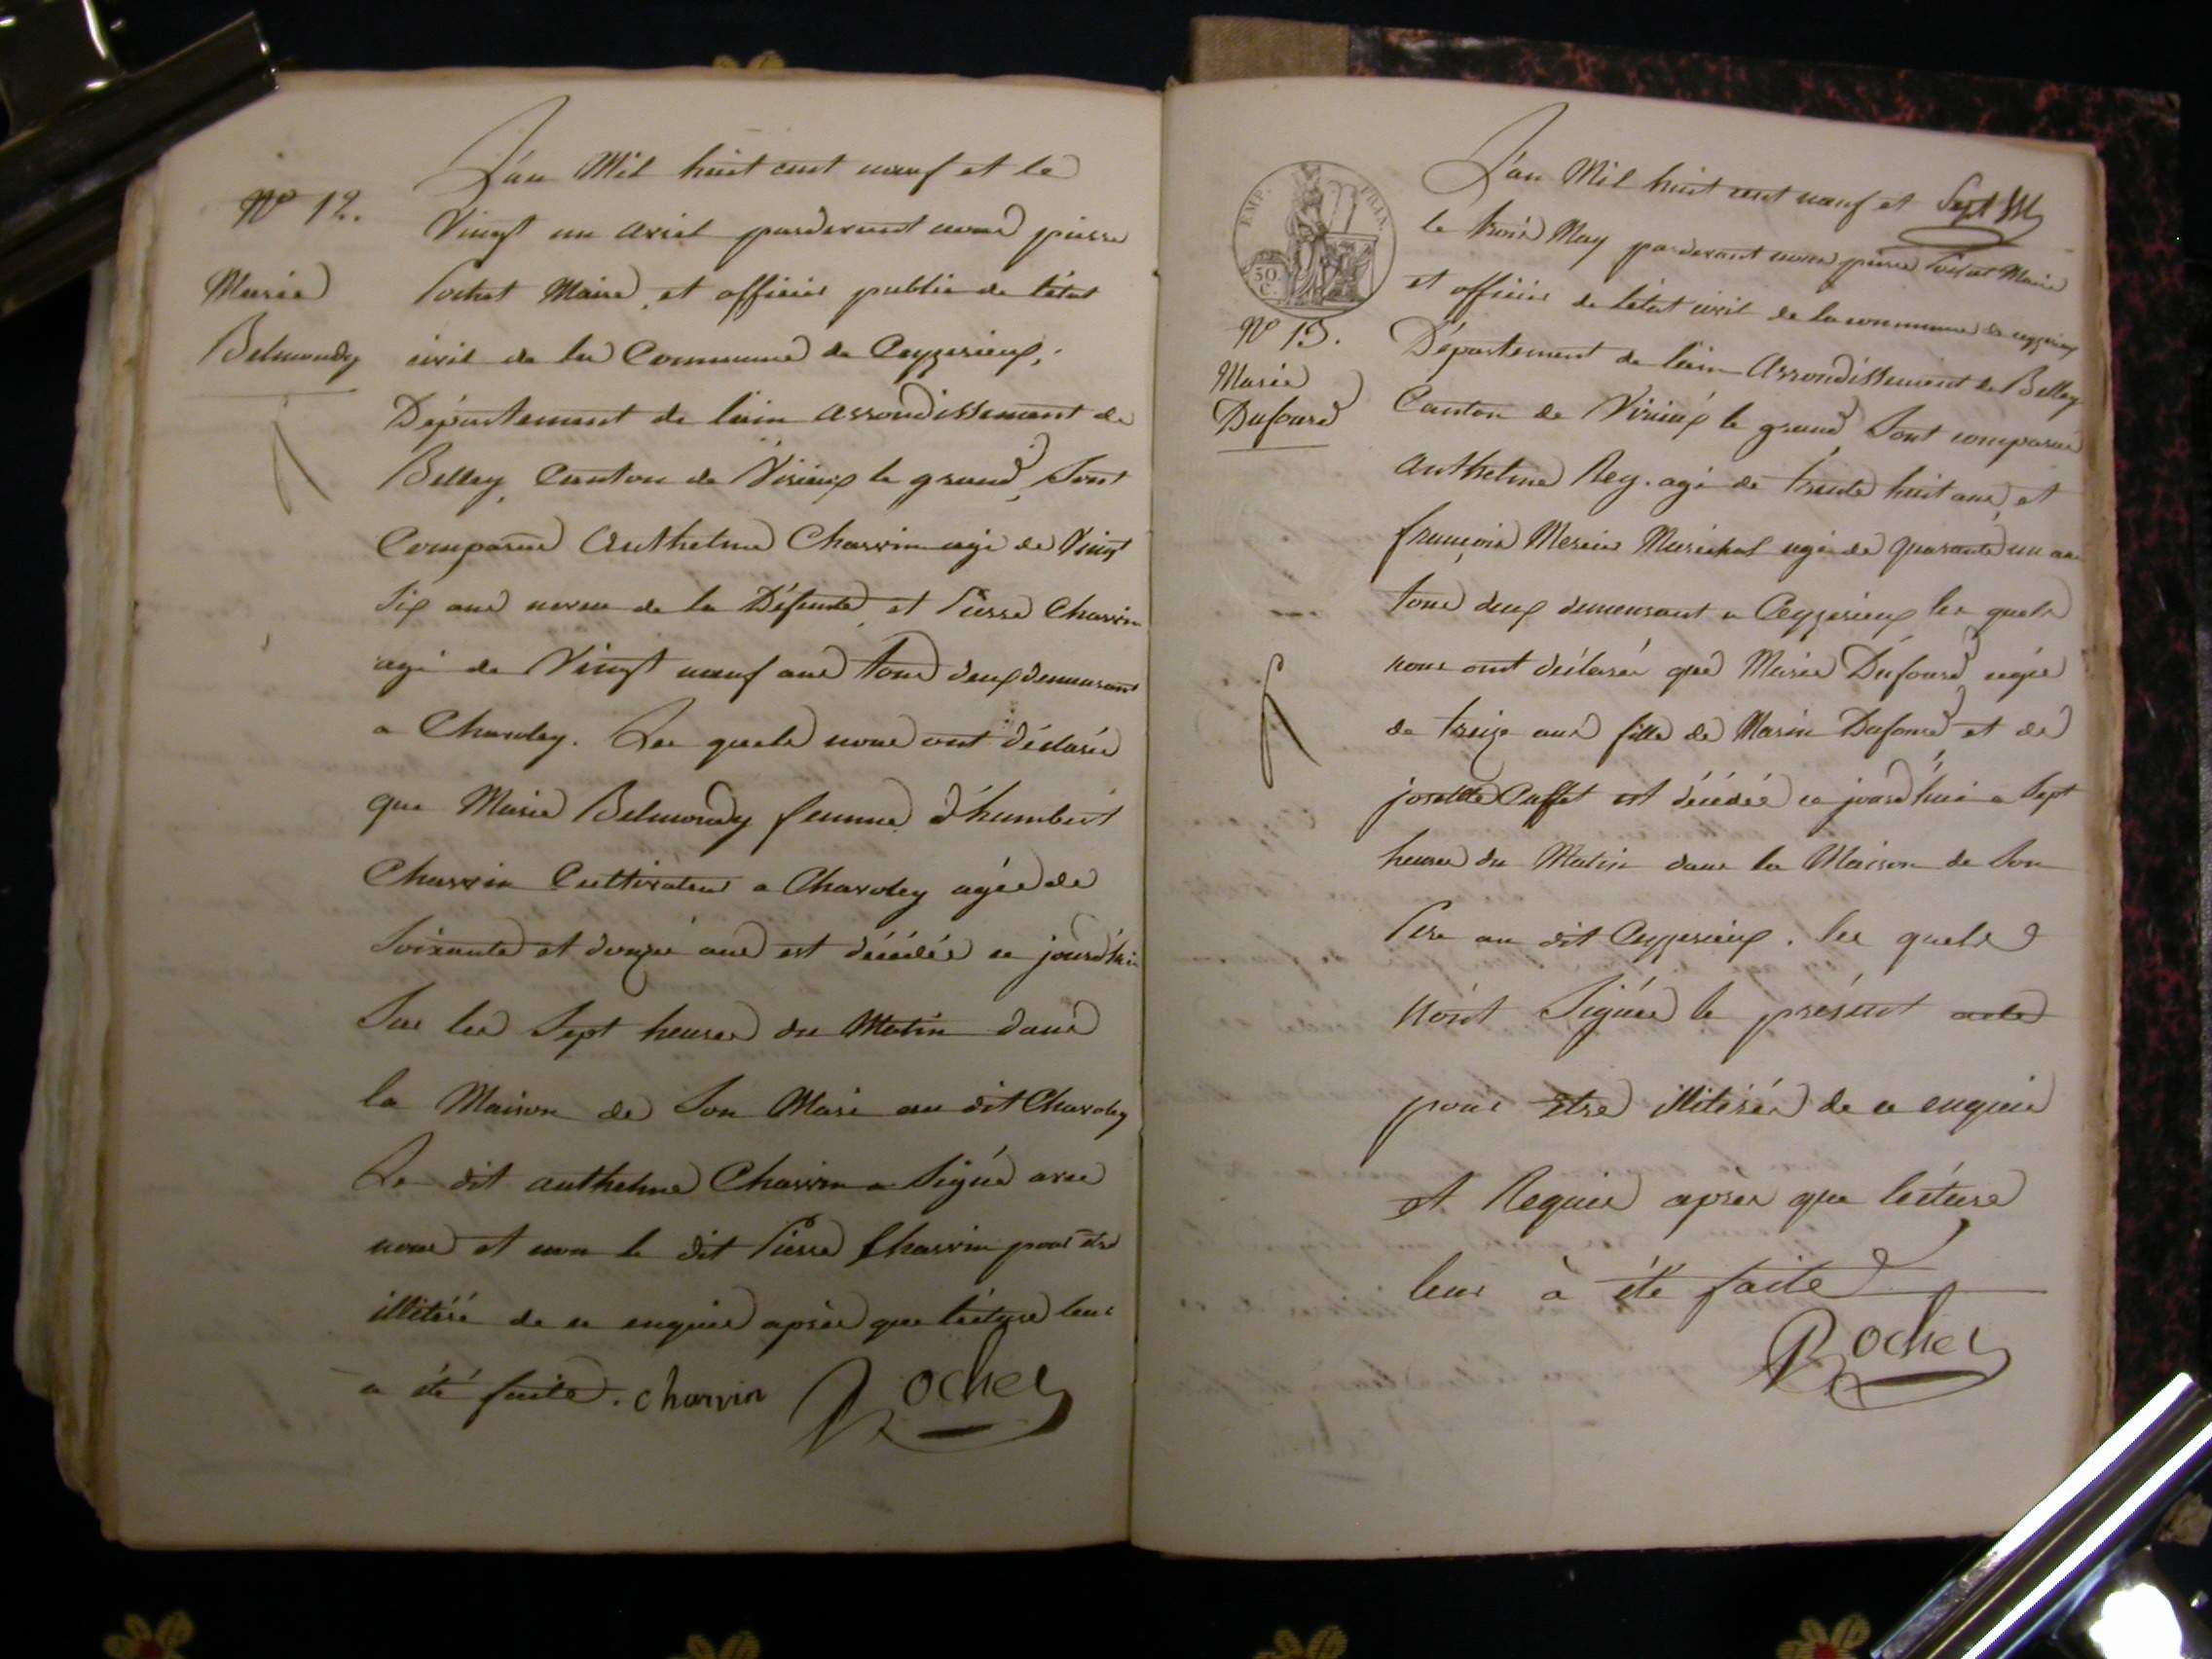 N° 12.
Marie
Belmondy
L'an Mil huit cent neuf et le
Vingt un avril pardevant nous pierre
Pochet Maire, et officier public de l'état
civil de la Commune de Ceyzerieux,
Département de l'ain arrondissement de
Belley, Canton de Virieux le grand, Sont
Comparus Anthelme Charvin agé de Vingt
Six ans neveu de la Défunte, et Pierre Charvin
agé de Vingt neuf ans tous deux demeurant
a Charoley. Les quels nous ont déclarés
que Marie Belmondy femme d'humbert
Charvin Cultivateur a Charoley agée de
Soixante et douze ans est décédée ce jourd'hui
Sur les Sept heures du Matin dans
la Maison de Son Mari au dit Charoley
Le dit anthelme Charvin a Signé avec
nous et non le dit Pierre Charvin pour être
illitéré de ce enquis après que lécture leur
a été faite. charvin Pochet
EMP. FRAN.
50
C.
N° 13.
Marie
Dufourd
L'an Mil huit cent neuf et Sept
le trois May pardevant nous pierre Pochet Maire
et officier de l'état civil de la commune de ceyzerieux
Département de l'ain Arrondissement de Belley
Canton de Virieux le grand, Sont comparus
Anthelme Rey. agé de trente huit ans, et
françois Mercier Maréchal agé de quarante un ans
tous deux demeurant a Ceyzerieux les quels
nous ont déclarés que Marie Dufourd agée
de treize ans fille de Marin Dufourd et de
josette Cuffet est décédée ce jourd'hui a Sept
heures du Matin dans la Maison de Son
Père au dit Ceyzerieux. les quels
n'ont Signés le présent acte
pour être illitérés de ce enquis
et Requis après que lécture
leur à été faite
Pochet